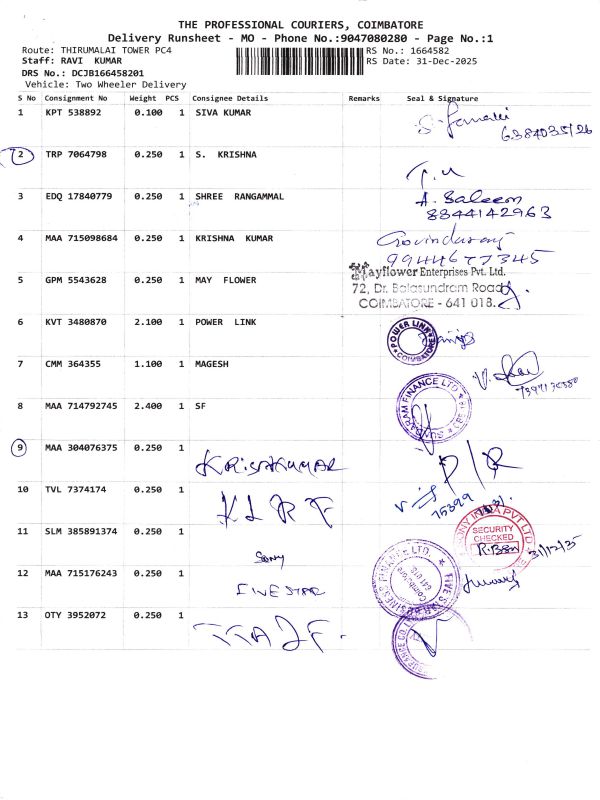 THE PROFESSIONAL COURIERS, COIMBATORE
Delivery Runsheet - MO - Phone No.:9047080280 - Page No.:1
Route: THIRUMALAI TOWER PC4 RS No.: 1664582
Staff: RAVI KUMAR RS Date: 31-Dec-2025
DRS No.: DCJB166458201
Vehicle: Two Wheeler Delivery
S No Consignment No Weight PCS Consignee Details Remarks Seal & Signature
1 KPT 538892 0.100 1 SIVA KUMAR
2 TRP 7064798 0.250 1 S. KRISHNA
3 EDQ 17840779 0.250 1 SHREE RANGAMMAL A. Saleem
8844142963
4 MAA 715098684 0.250 1 KRISHNA KUMAR Govindaraj
9944677345
5 GPM 5543628 0.250 1 MAY FLOWER Mayflower Enterprises Pvt. Ltd.
72, Dr. Balasundram Road
COIMBATORE - 641 018.
6 KVT 3480870 2.100 1 POWER LINK POWER LINK COIMBATORE
7 CMM 364355 1.100 1 MAGESH
8 MAA 714792745 2.400 1 SF SUNDARAM FINANCE LTD
9 MAA 304076375 0.250 1 KRISNAKUMAR
10 TVL 7374174 0.250 1 K L R F 75399
11 SLM 385891374 0.250 1 Sony SONY INDIA PVT LTD SECURITY CHECKED 31/12/25
12 MAA 715176243 0.250 1 FIVE STAR FIVE STAR BUSINESS FINANCE LTD. Coimbatore 641 018
13 OTY 3952072 0.250 1